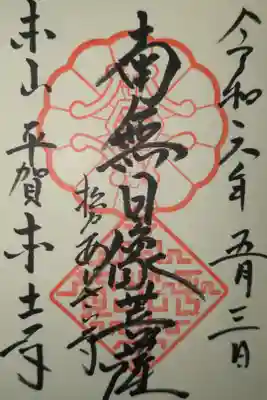 令和六年 五月三日
南無日像菩薩
松戸
本山 平賀 本土寺